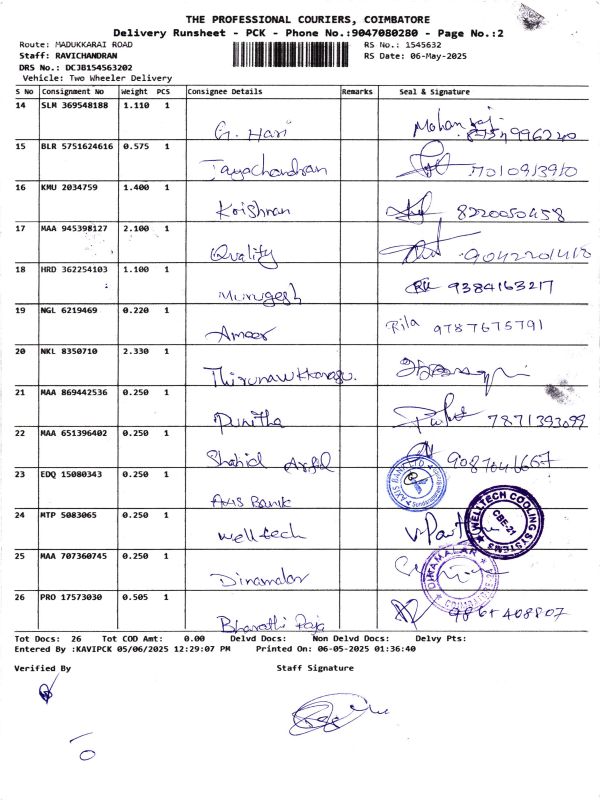 THE PROFESSIONAL COURIERS, COIMBATORE
Delivery Runsheet - PCK - Phone No.:9047080280 - Page No.:2
Route: MADUKKARAI ROAD
RS No.: 1545632
Staff: RAVICHANDRAN
RS Date: 06-May-2025
DRS No.: DCJB154563202
Vehicle: Two Wheeler Delivery
S No Consignment No Weight PCS Consignee Details Remarks Seal & Signature
14 SLM 369548188 1.110 1
G. Hari Mohan raj 8754996240
15 BLR 5751624616 0.575 1
Jayachandran 7010913910
16 KMU 2034759 1.400 1
Krishnan 8220050458
17 MAA 945398127 2.100 1
Quality 9042201418
18 HRD 362254103 1.100 1
Murugesh 9384163217
19 NGL 6219469 0.220 1
Ameer Rila 9787675791
20 NKL 8350710 2.330 1
Thirunavukkarasu.
21 MAA 869442536 0.250 1
Punitha 7871393099
22 MAA 651396402 0.250 1
Shahid 9087646667
23 EDQ 15080343 0.250 1
Axis Bank AXIS BANK LTD
24 MTP 5083065 0.250 1
Welltech WELLTECH COOLING SYSTEMS CBE-21
25 MAA 707360745 0.250 1
Dinamalar DINAMALAR
26 PRO 17573030 0.505 1
Bharathi Raja 9865408807
Tot Docs: 26 Tot COD Amt: 0.00 Delvd Docs: Non Delvd Docs: Delvy Pts:
Entered By :KAVIPCK 05/06/2025 12:29:07 PM Printed On: 06-05-2025 01:36:40
Verified By Staff Signature